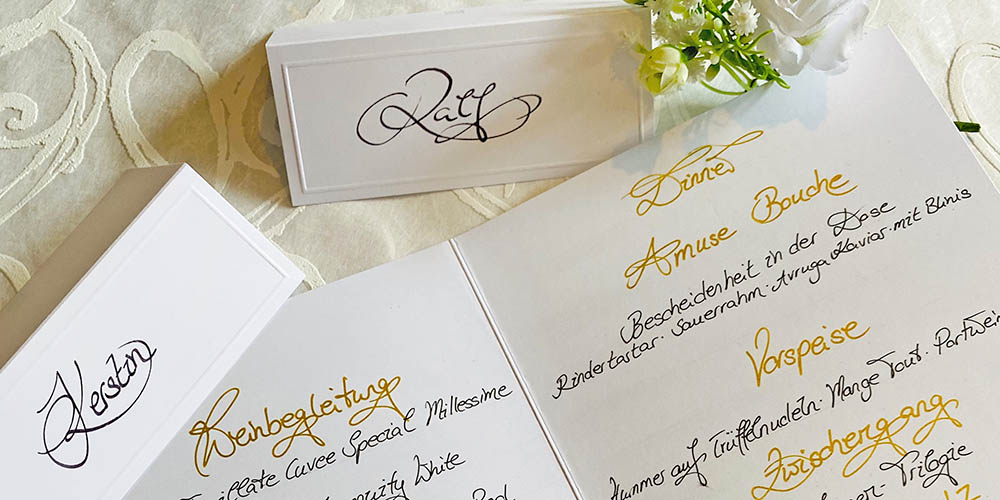 Ralf
Kerstin
Weinbegleitung
Cuvee Special Millessime
White
Dinner
Amuse Bouche
Bescheidenheit in der Dose
Rindertartar · Sauerrahm · Avruga Kaviar · mit Blinis
Vorspeise
Hummer auf Trüffelnudeln · Mange Tout · Portwein
Zwischengang
Trilogie